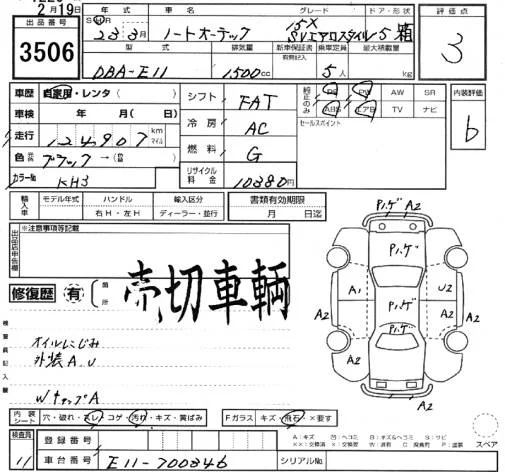 2月19日
出品番号
3506
年式 車名 グレード ドア・形状
23年3月 ノートオーテック 15X SVエアロスタイル 5 箱
評価点
3
型式 排気量 新車保証書 乗車定員 最大積載量
有無記入
DBA-E11 1500cc 5人 kg
車歴 自家用・レンタ( )
車検 年 月( 日)
走行 124907 km マイル
色 ブラック→( )
カラーNo KH3
シフト FAT
冷房 AC
燃料 G
リサイクル料金 10380円
純正のみ PS PW AW SR
ABS エアB TV ナビ
セールスポイント
内装評価
b
輸入車 モデル年式 ハンドル 輸入区分 書類有効期限
右H・左H ディーラー・並行 月 日迄
出品店申告欄
※注意事項等記載
修復歴 有 箇所
売切車輌
検査員記載欄
オイルにじみ
外装A.U
WチップA
Pハゲ A2
Pハゲ
A1 Pハゲ U2
A2 A2
Pハゲ
A2 A2
A2
内装シート 穴・破れ・スレ・コゲ・汚れ・キズ・黄ばみ Fガラス キズ・飛石・×要す
A:キズ 凹:ヘコミ B:キズ&ヘコミ S:サビ
××:交換済 ×:交換要 W:波有 C:腐食 P:塗装
スペア
検査員
11
登録番号
車台番号 E11-700346 シリアルNo.